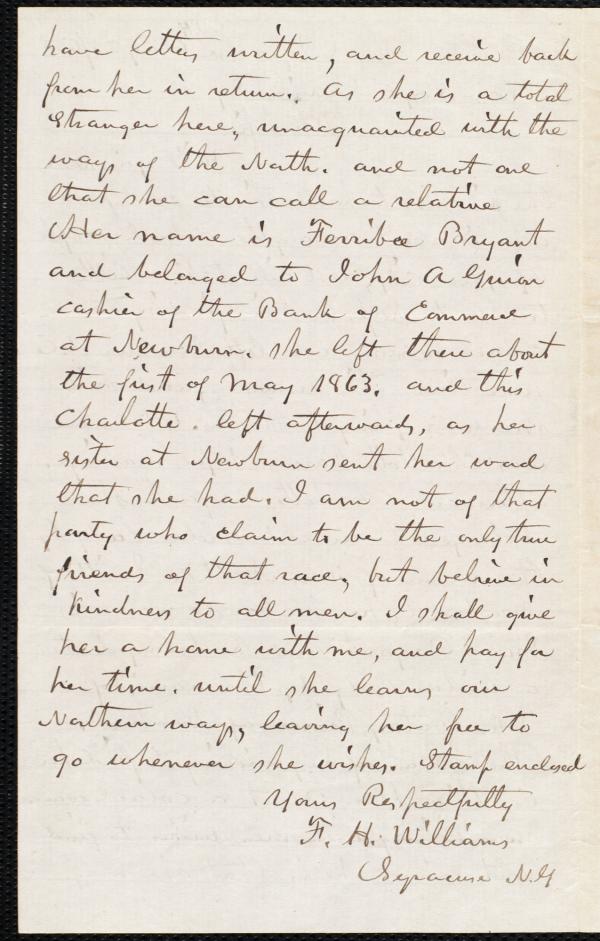 have letters written, and receive back
from her in return. As she is a total
stranger here, unacquainted with the
ways of the North. and not one
that she can call a relative
Her name is Ferribee Bryant
and belonged to John A Guion
cashier of the Bank of Commerce
at Newburn. she left there about
the first of May 1863. and this
Charlotte. left afterwards, as her
sister at Newburn sent her word
that she had. I am not of that
party who claim to be the only true
friends of that race, but believe in
kindness to all men. I shall give
her a home with me, and pay for
her time. until she learns our
Northern ways, leaving her free to
go whenever she wishes. Stamp enclosed
Yours Respectfully
F. H. Williams
Syracuse N.Y